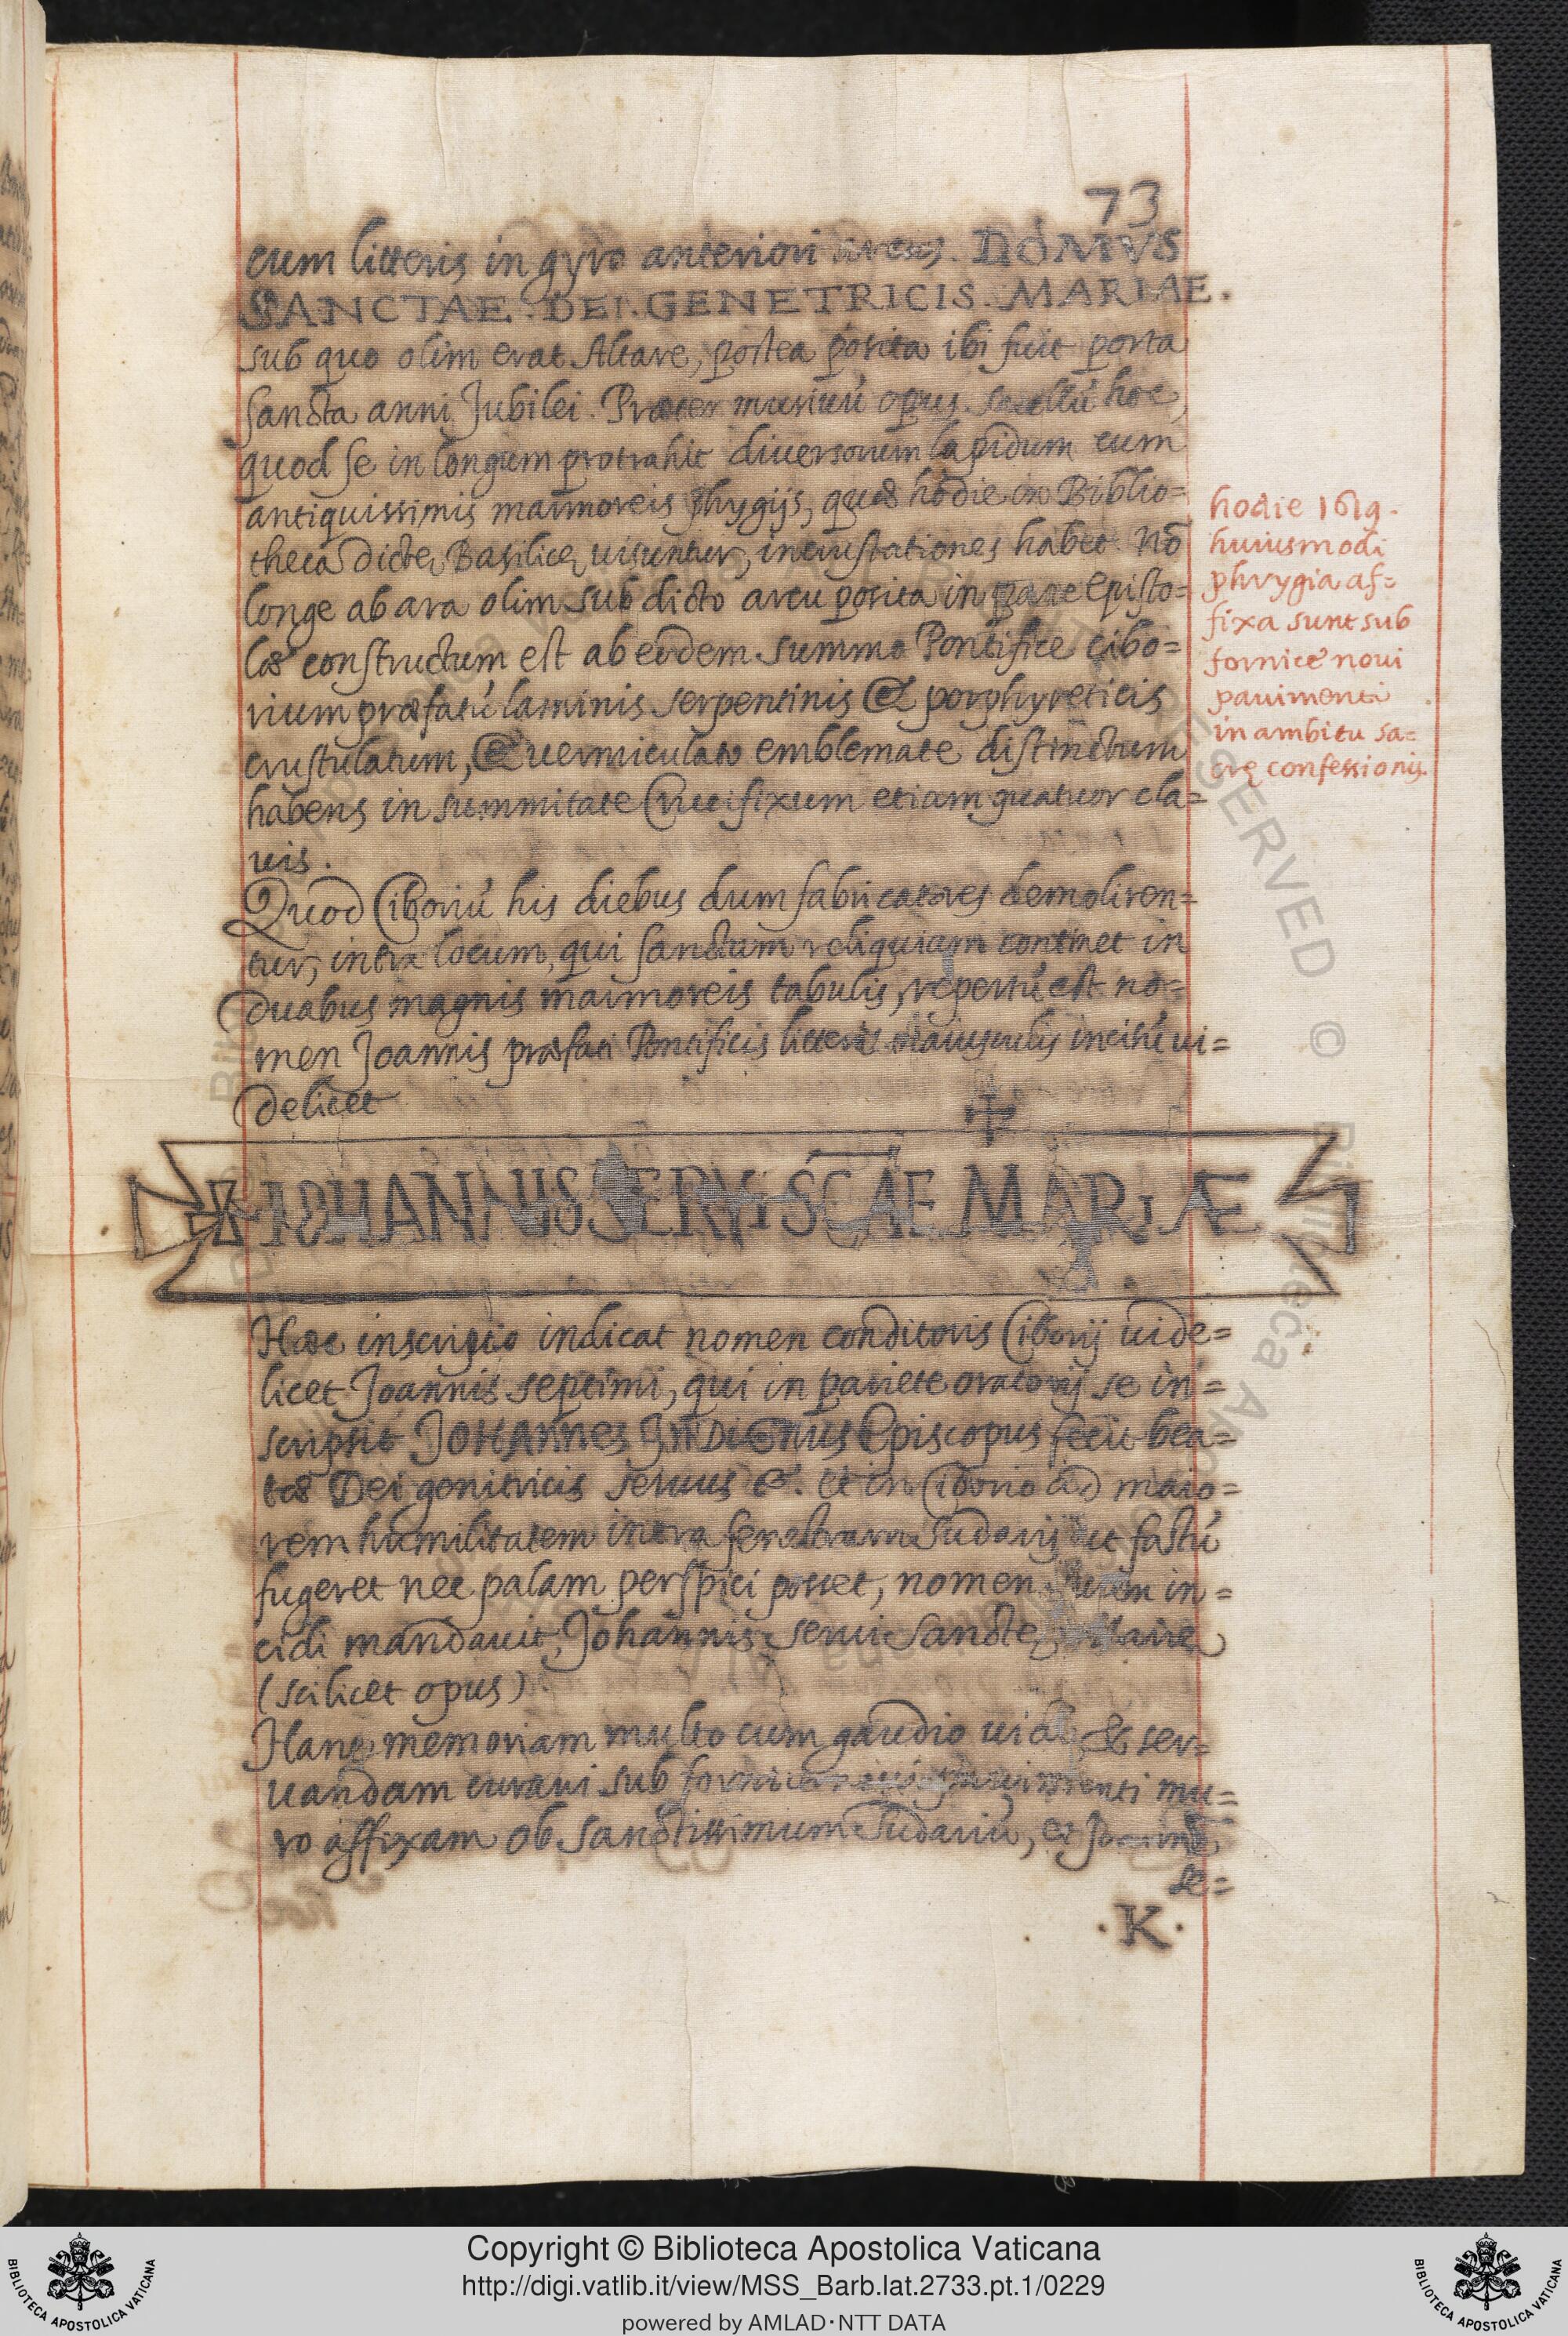 73
cum litteris in gyro anteriori arcus. DOMVS
SANCTAE. DEI. GENETRICIS. MARIAE.
sub quo olim erat Altare, postea posita ibi fuit porta
sancta anni Jubilei. Præter musiuú opus sacellú hoc,
quod se in longum protrahit diuersorum lapidum cum
antiquissimis marmoreis phrygijs, quæ hodie in Biblio=
theca dictę Basilicę uisuntur, incrustationes habet. Nō
longe ab ara olim sub dicto arcu posita in parte Episto=
læ constructum est ab eodem summo Pontifice cibo=
rium præfatú laminis serpentinis & porphyreticis
crustulatum, & uermiculato emblemate distinctum
habens in summitate Crucifixum etiam quatuor cla=
uis.
Quod Ciboriú his diebus dum fabricatores demoliren=
tur, intra locum, qui sanctam reliquiam continet in
duabus magnis marmoreis tabulis, repertú est no=
men Joannis præfati Pontificis litteris maiusculis incisú ui=
delicet
✠ IOHANNIS SERVI SCAE MARIAE
Hæc inscriptio indicat nomen conditoris Ciborij uide=
licet Joannis septimi, qui in pariete oratorij se in=
scripsit JOHANNES INDIGNUS Episcopus fecit bea=
tæ Dei genitricis seruus &. et in Ciborio ad maio=
rem humilitatem intra fenestram Sudarij ut fastú
fugeret nec palam perspici posset, nomen suum in=
cidi mandauit, Johannis serui Sanctę Marię
(scilicet opus)
Hanc memoriam multo cum gaudio uidi, & ser=
uandam curaui sub fornice noui pauimenti mu=
ro affixam ob Sanctissimum Sudariú, et Joannē
se=
.K.
hodie 1619.
huiusmodi
phrygia af=
fixa sunt sub
fornice noui
pauimenti
in ambitu sa=
crę confessionis.
Copyright © Biblioteca Apostolica Vaticana
http://digi.vatlib.it/view/MSS_Barb.lat.2733.pt.1/0229
powered by AMLAD·NTT DATA
BIBLIOTECA APOSTOLICA VATICANA
BIBLIOTECA APOSTOLICA VATICANA